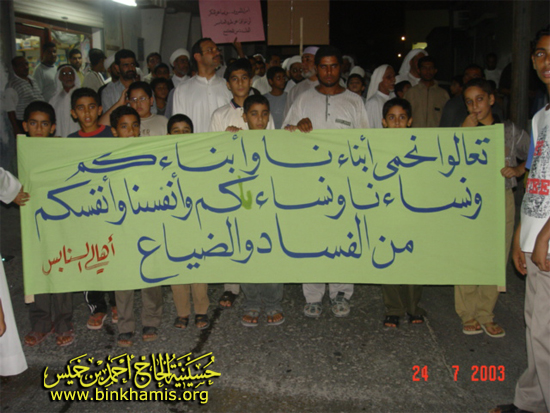 تعالوا نحمي أبناءنا وأبناءكم
ونساءنا ونساءكم وأنفسنا وأنفسكم
من الفساد والضياع
أهالي السنابس
24 7 2003
حسينية الحاج أحمد بن خميس
www.binkhamis.org